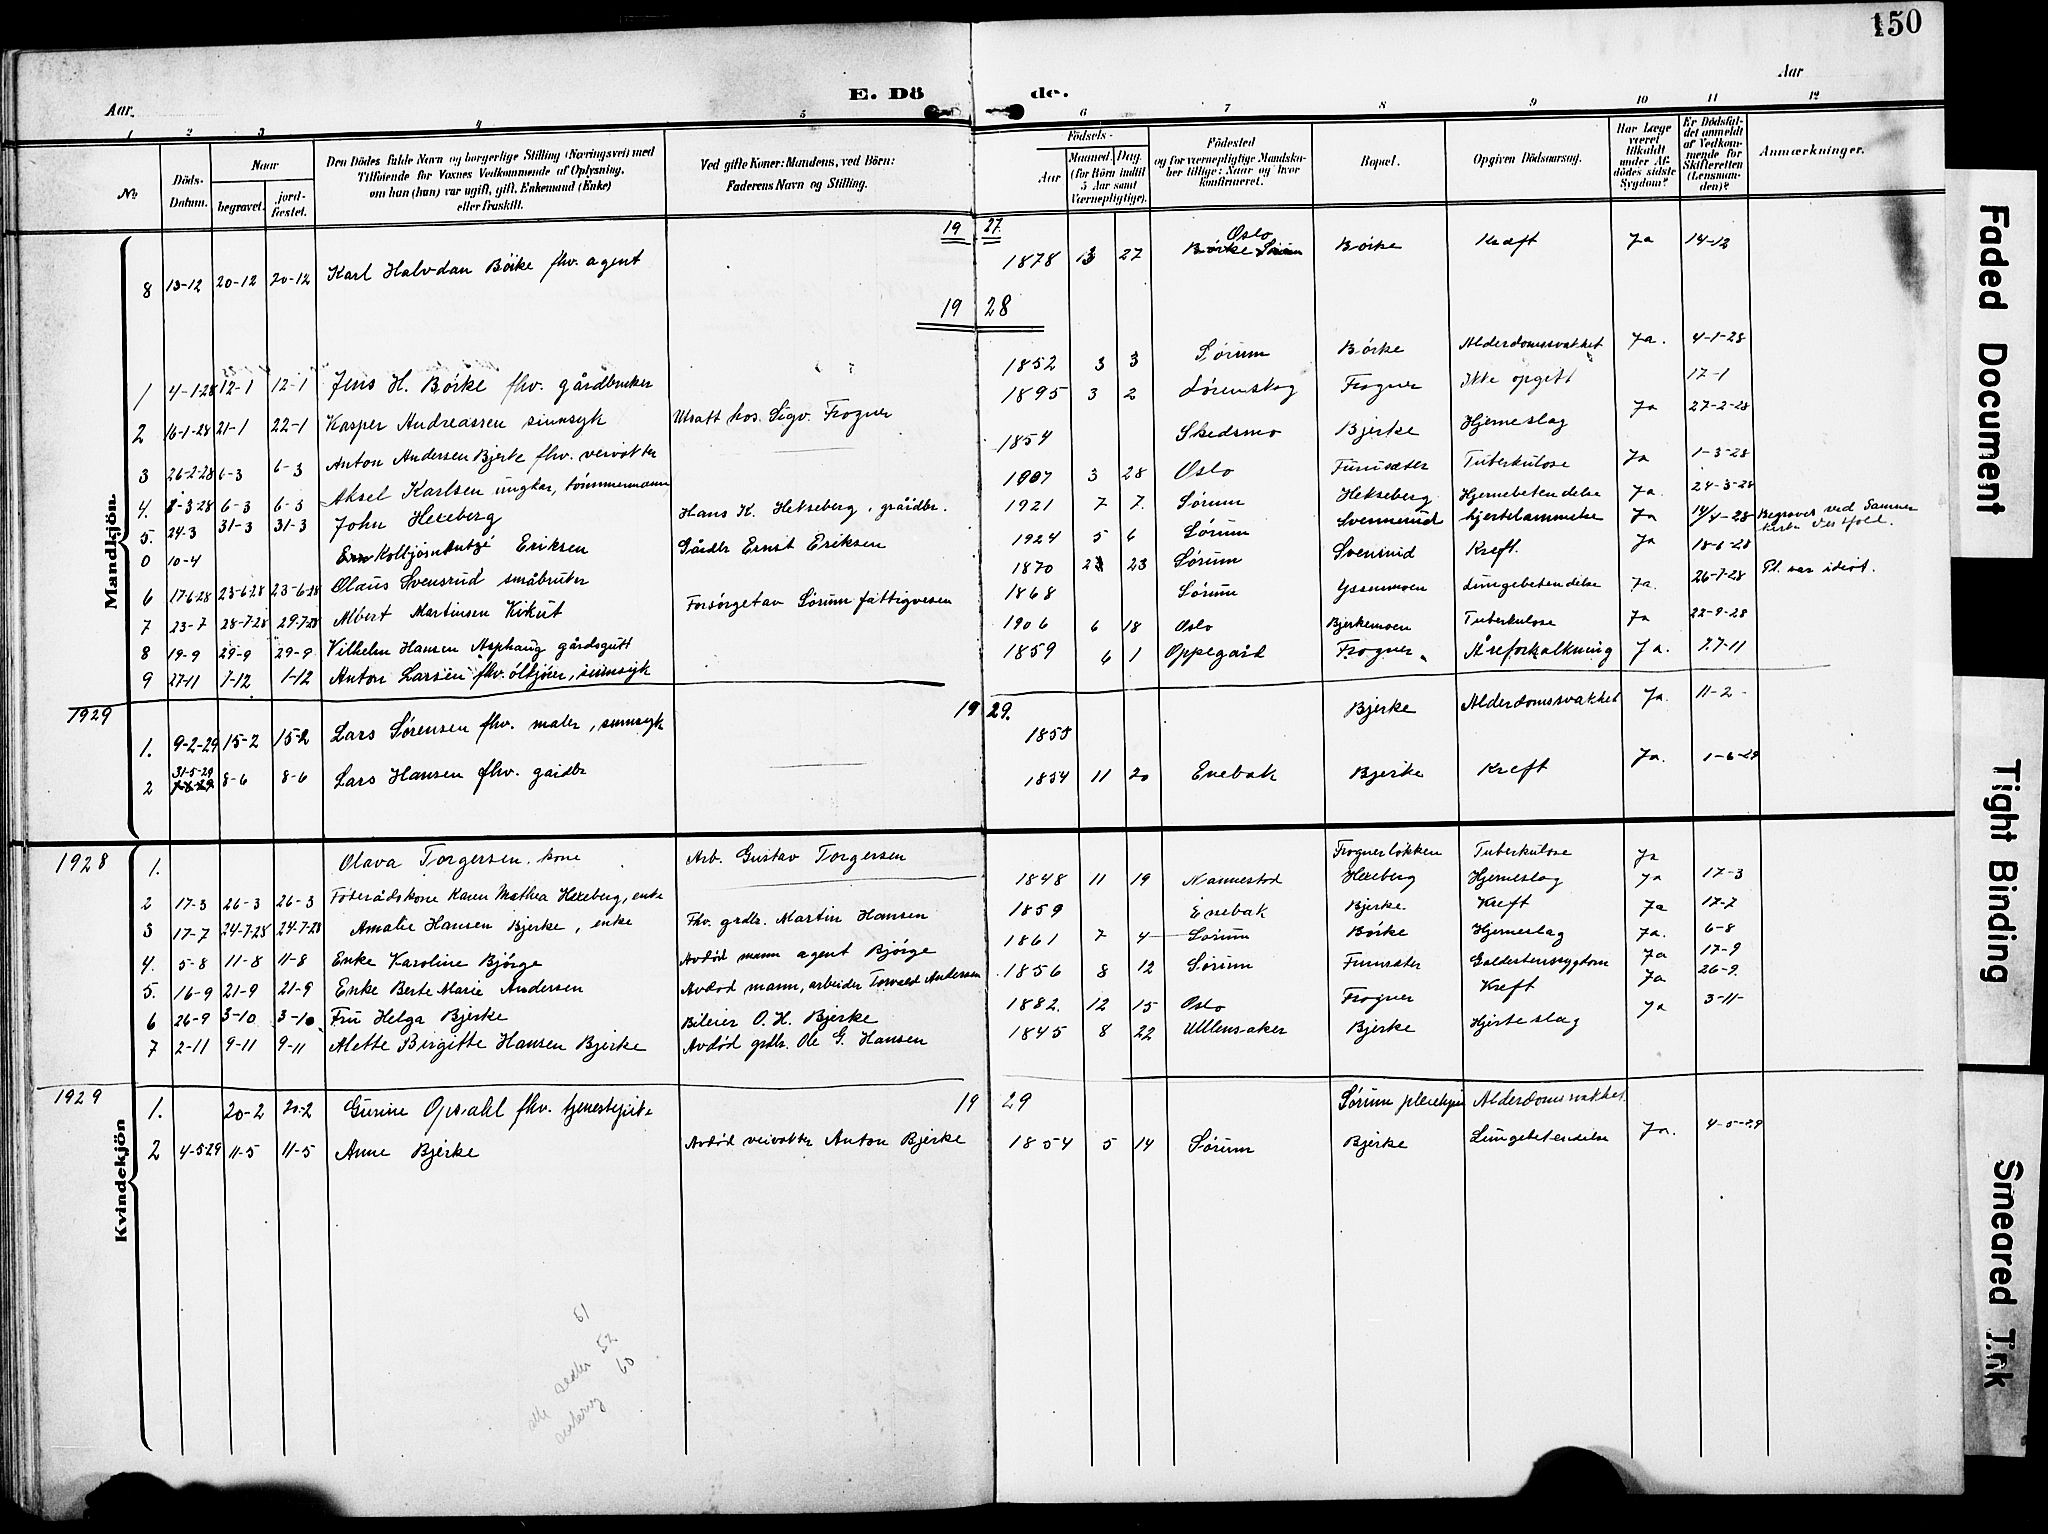 150
Aar.
E. Dö
de.
Aar
1 2 3 4 5 6 7 8 9 10 11 12
No.
Döds-Datum.
Naar
begravet.
jord-fæstet.
Den Dödes fulde Navn og borgerlige Stilling (Næringsvei) med
Tilföiende for Voxnes Vedkommende af Oplysning,
om hun (han) var ugift, gift, Enkemand (Enke)
eller fraskilt.
Ved gifte Koner: Mandens, ved Börn:
Faderens Navn og Stilling.
Födsels-
Aar
Maaned. Dag.
(for Börn indtil
5 Aar samt
Værnepligtige).
Födested
og for værnepligtige Mandska-
ber tillige: Naar og hvor
konfirmeret.
Bopæl.
Opgiven Dödsaarsag.
Har Læge
været
tilkaldt
under Af-
dödes sidste
Sygdom?
Er Dödsfal-
det anmeldt
af Vedkom-
mende for
Skifteretten
(Lensman-
den)?
Anmærkninger.
Mandkjön.
19 27.
8 13-12 20-12 20-12 Karl Halvdan Börke fhv. agent 1878 13 27 Oslo Börke Sörum Börke Kræft Ja 14-12
19 28
1 4-1-28 12-1 12-1 Jens H. Börke fhv. gårdbruker 1852 3 3 Sørum Børke Alderdomssvakhet Ja. 4-1-28
2 16-1-28 21-1 22-1 Kasper Andreassen sinnsyk Utsatt hos. Sigv. Frogner 1895 3 2 Lørenskog Frogner Ikke opgitt 17-1
3 26-2-28 6-3 6-3 Anton Andersen Bjerke fhv. veivokter 1854 Skedsmo Bjerke Hjerneslag Ja 27-2-28
4. 8-3-28 6-3 6-3 Aksel Karlsen ungkar, tømmermann 1907 3 28 Oslo Furusæter Tuberkulose Ja 1-3-28
5. 24-3 31-3 31-3 John Hexeberg Hans K. Hekseberg, gråidbr. 1921 7 7. Sørum Hekseberg Hjernebetendelse Ja. 24-3-28
0 10-4 Kolbjörn Eriksen Gårdbr Ernst Eriksen 1924 5 6 Sørum Svensrud hjertelammelse Ja 14/4-28 Begraves ved Kirke Vestfold.
6 17-6-28 23-6-28 23-6-28 Olaus Svensrud småbruker 1870 2 23 Sørum Svensrud Kreft. Ja 18-6-28
7 23-7 28-7-28 29-7-28 Albert Martinsen Kikut Forsørget av Sørum fattigvesen 1868 Sørum Lungebetendelse Ja. 26-7-28 Pl. var idiot.
8 19-9 29-9 29-9 Vilhelm Hansen Asphaug gårdsgutt 1906 6 18 Oslo Bjerkemoen Tuberkulose Ja 22-9-28
9 27-11 1-12 1-12 Anton Larsen fhv. ølkjører, sinnsyk 1859 6 1 Oppegård Frogner Åreforkalkning Ja. 27-11
1929 19 29.
1. 9-2-29 15-2 15-2 Lars Sørensen fhv. maler, sinnsyk 1855 Bjerke Alderdomssvakhet Ja. 11-2-
2 31-5-29 8-6 8-6 Lars Hansen fhv. gårdbr 1854 11 20 Enebak Bjerke Kreft Ja. 1-6-29
Kvindekjön
1928 1. Olava Torgersen, kone Arb. Gustav Torgersen Frognerløkken Tuberkulose Ja
2 17-3 26-3 26-3 Föderådskone Karen Mathea Hexeberg, enke 1848 11 19 Nannestad Hexeberg Hjerneslag Ja 17-3
3 17-7 24-7-28 24-7-28 Amalie Hansen Bjerke, enke Fhv. grdbr. Martin Hansen 1859 Enebak Bjerke Kreft Ja 17-7
4. 5-8 11-8 11-8 Enke Karoline Bjørge Avdød mann agent Bjørge 1861 7 4 Sørum Børke Hjerneslag Ja. 6-8
5. 16-9 21-9 21-9 Enke Berte Marie Andersen Avdød mann, arbeider Torvald Andersen 1856 8 12 Sørum Furusæter Galdestenssygdom Ja 17-9
6 26-9 3-10 3-10 Fru Helga Bjerke Bileier O. H. Bjerke 1882. 12 15 Oslo Frogner Kreft Ja 26-9.
7 2-11 9-11 9-11 Alette Birgitte Hansen Bjerke Avdød grdbr. Ole G. Hansen 1845 8 22 Ullensaker Bjerke Hjerteslag Ja 3-11-
1929 19 29
1. 20-2 20-2 Gurine Opsahl fhv. tjenestepike Sørum pleiehjem Alderdomssvakhet.
2 4-5-29 11-5 11-5 Anne Bjerke Avdød veivokter Anton Bjerke 1854 5 14 Sørum Bjerke Lungebetendelse Ja. 4-5-29
61
alle sedler 52
60
Faded Document
Tight Binding
Smeared Ink